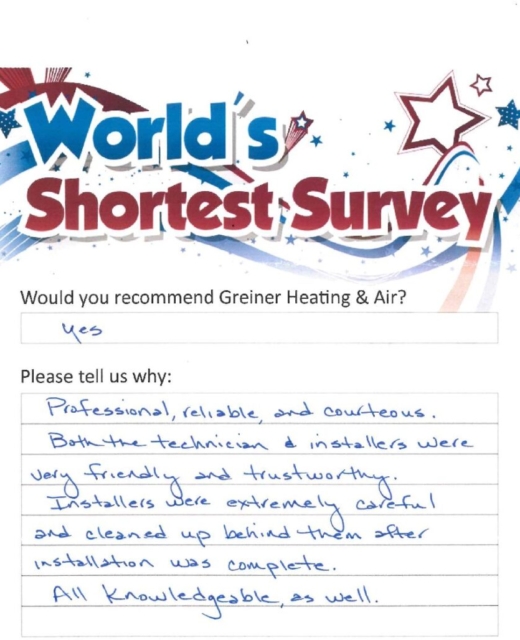 World's
Shortest Survey
Would you recommend Greiner Heating & Air?
yes
Please tell us why:
Professional, reliable, and courteous.
Both the technician & installers were
very friendly and trustworthy.
Installers were extremely careful
and cleaned up behind them after
installation was complete.
All knowledgeable, as well.